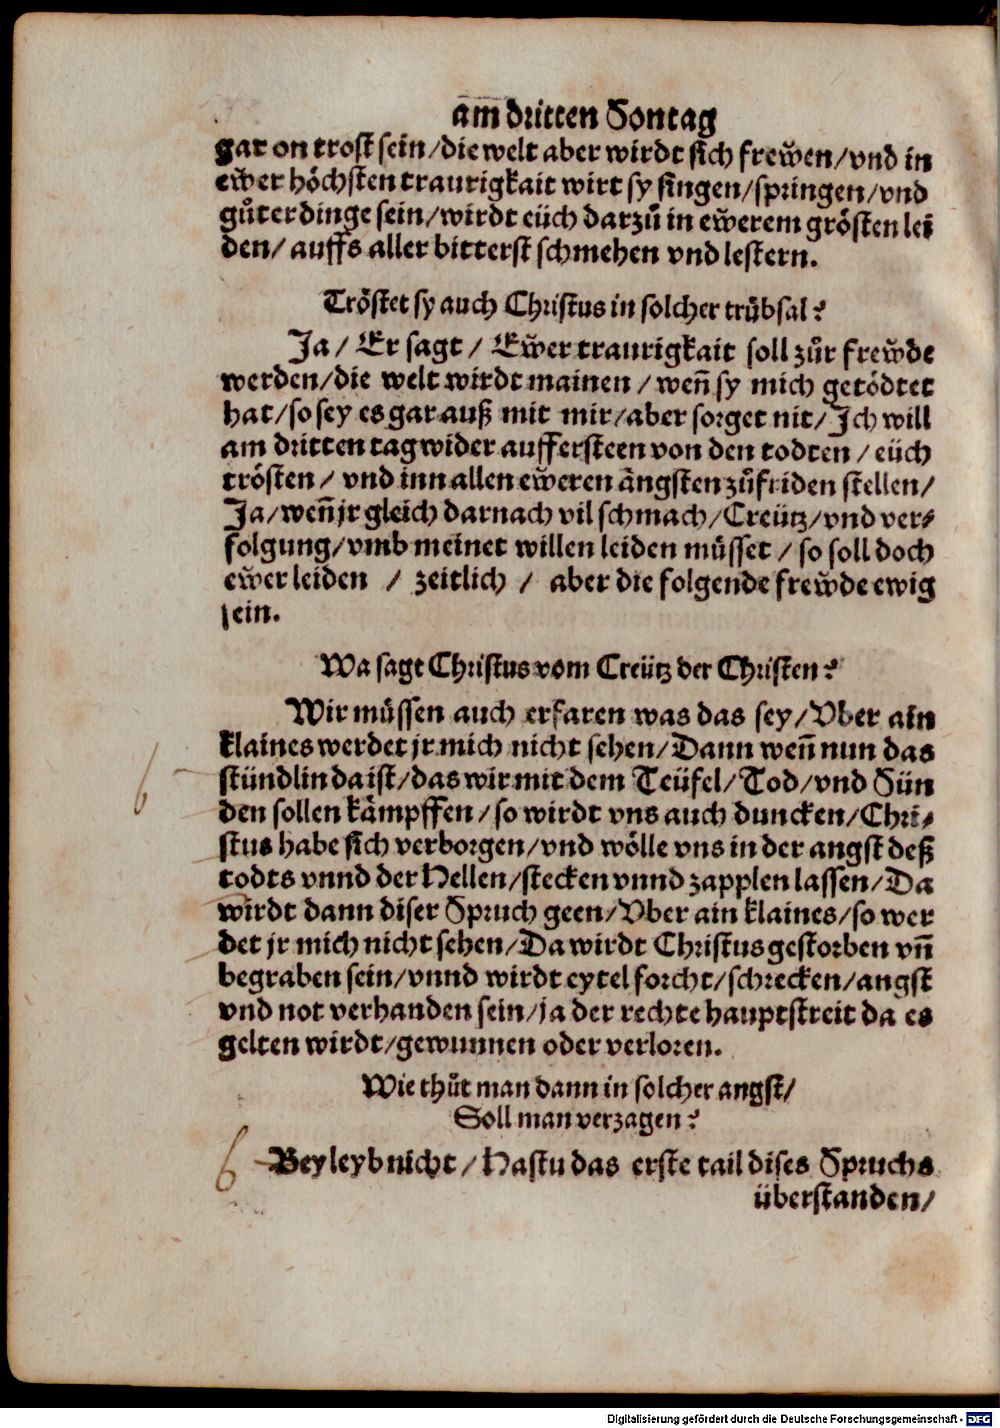 am dritten Sontag
gar on trost sein/die welt aber wirdt sich frewͤen/vnd in
ewͤer hoͤchsten traurigkait wirt sy singen/springen/vnd
guͦter dinge sein/wirdt eüch darzuͦ in ewͤerem groͤsten lei
den/ auffs aller bitterst schmehen vnd lestern.
Troͤstet sy auch Christus in solcher truͤbsal?
Ja/ Er sagt/ Ewͤer traurigkait soll zuͦr frewͤde
werden/die welt wirdt mainen/wen̄ sy mich getoͤdtet
hat/so sey es gar auß mit mir/aber sorget nit/Ich will
am dritten tag wider aufferͤsteen von den todten/eüch
troͤsten/ vnd inn allen ewͤeren aͤngsten zuͦfriden stellen/
Ja/wen̄ jr gleich darnach vil schmach/Creütz/vnd ver⸗
folgung/vmb meinet willen leiden muͤsset/so soll doch
ewͤer leiden / zeitlich / aber die folgende frewͤde ewig
sein.
Wa sagt Christus vom Creütz der Christen?
Wir muͤssen auch erfaren was das sey/Vber ain
klaines werdet jr mich nicht sehen/Dann wen̄ nun das
stündlin da ist/das wir mit dem Teüfel/Tod/vnd Sün
den sollen kaͤmpffen/so wirdt vns auch duncken/Chri⸗
stus habe sich verborgen/vnd woͤlle vns in der angst deß
todts vnnd der Hellen/stecken vnnd zapplen lassen/Da
wirdt dann diser Spruch geen/Vber ain klaines/so wer
det jr mich nicht sehen/Da wirdt Christus gestorben vn̄
begraben sein/vnnd wirdt eytel forcht/schrecken/angst
vnd not verhanden sein/ja der rechte hauptstreit da es
gelten wirdt/gewunnen oder verloren.
Wie thuͦt man dann in solcher angst/
Soll man verzagen?
Beyleyb nicht/Hastu das erste tail dises Spruchs
überstanden/
Digitalisierung gefördert durch die Deutsche Forschungsgemeinschaft - DFG